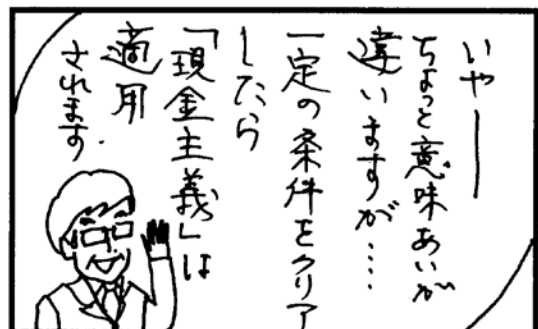 いやー
ちょっと意味あいが
違いますが‥‥
一定の条件をクリア
したら
「現金主義」は
適用
されます.